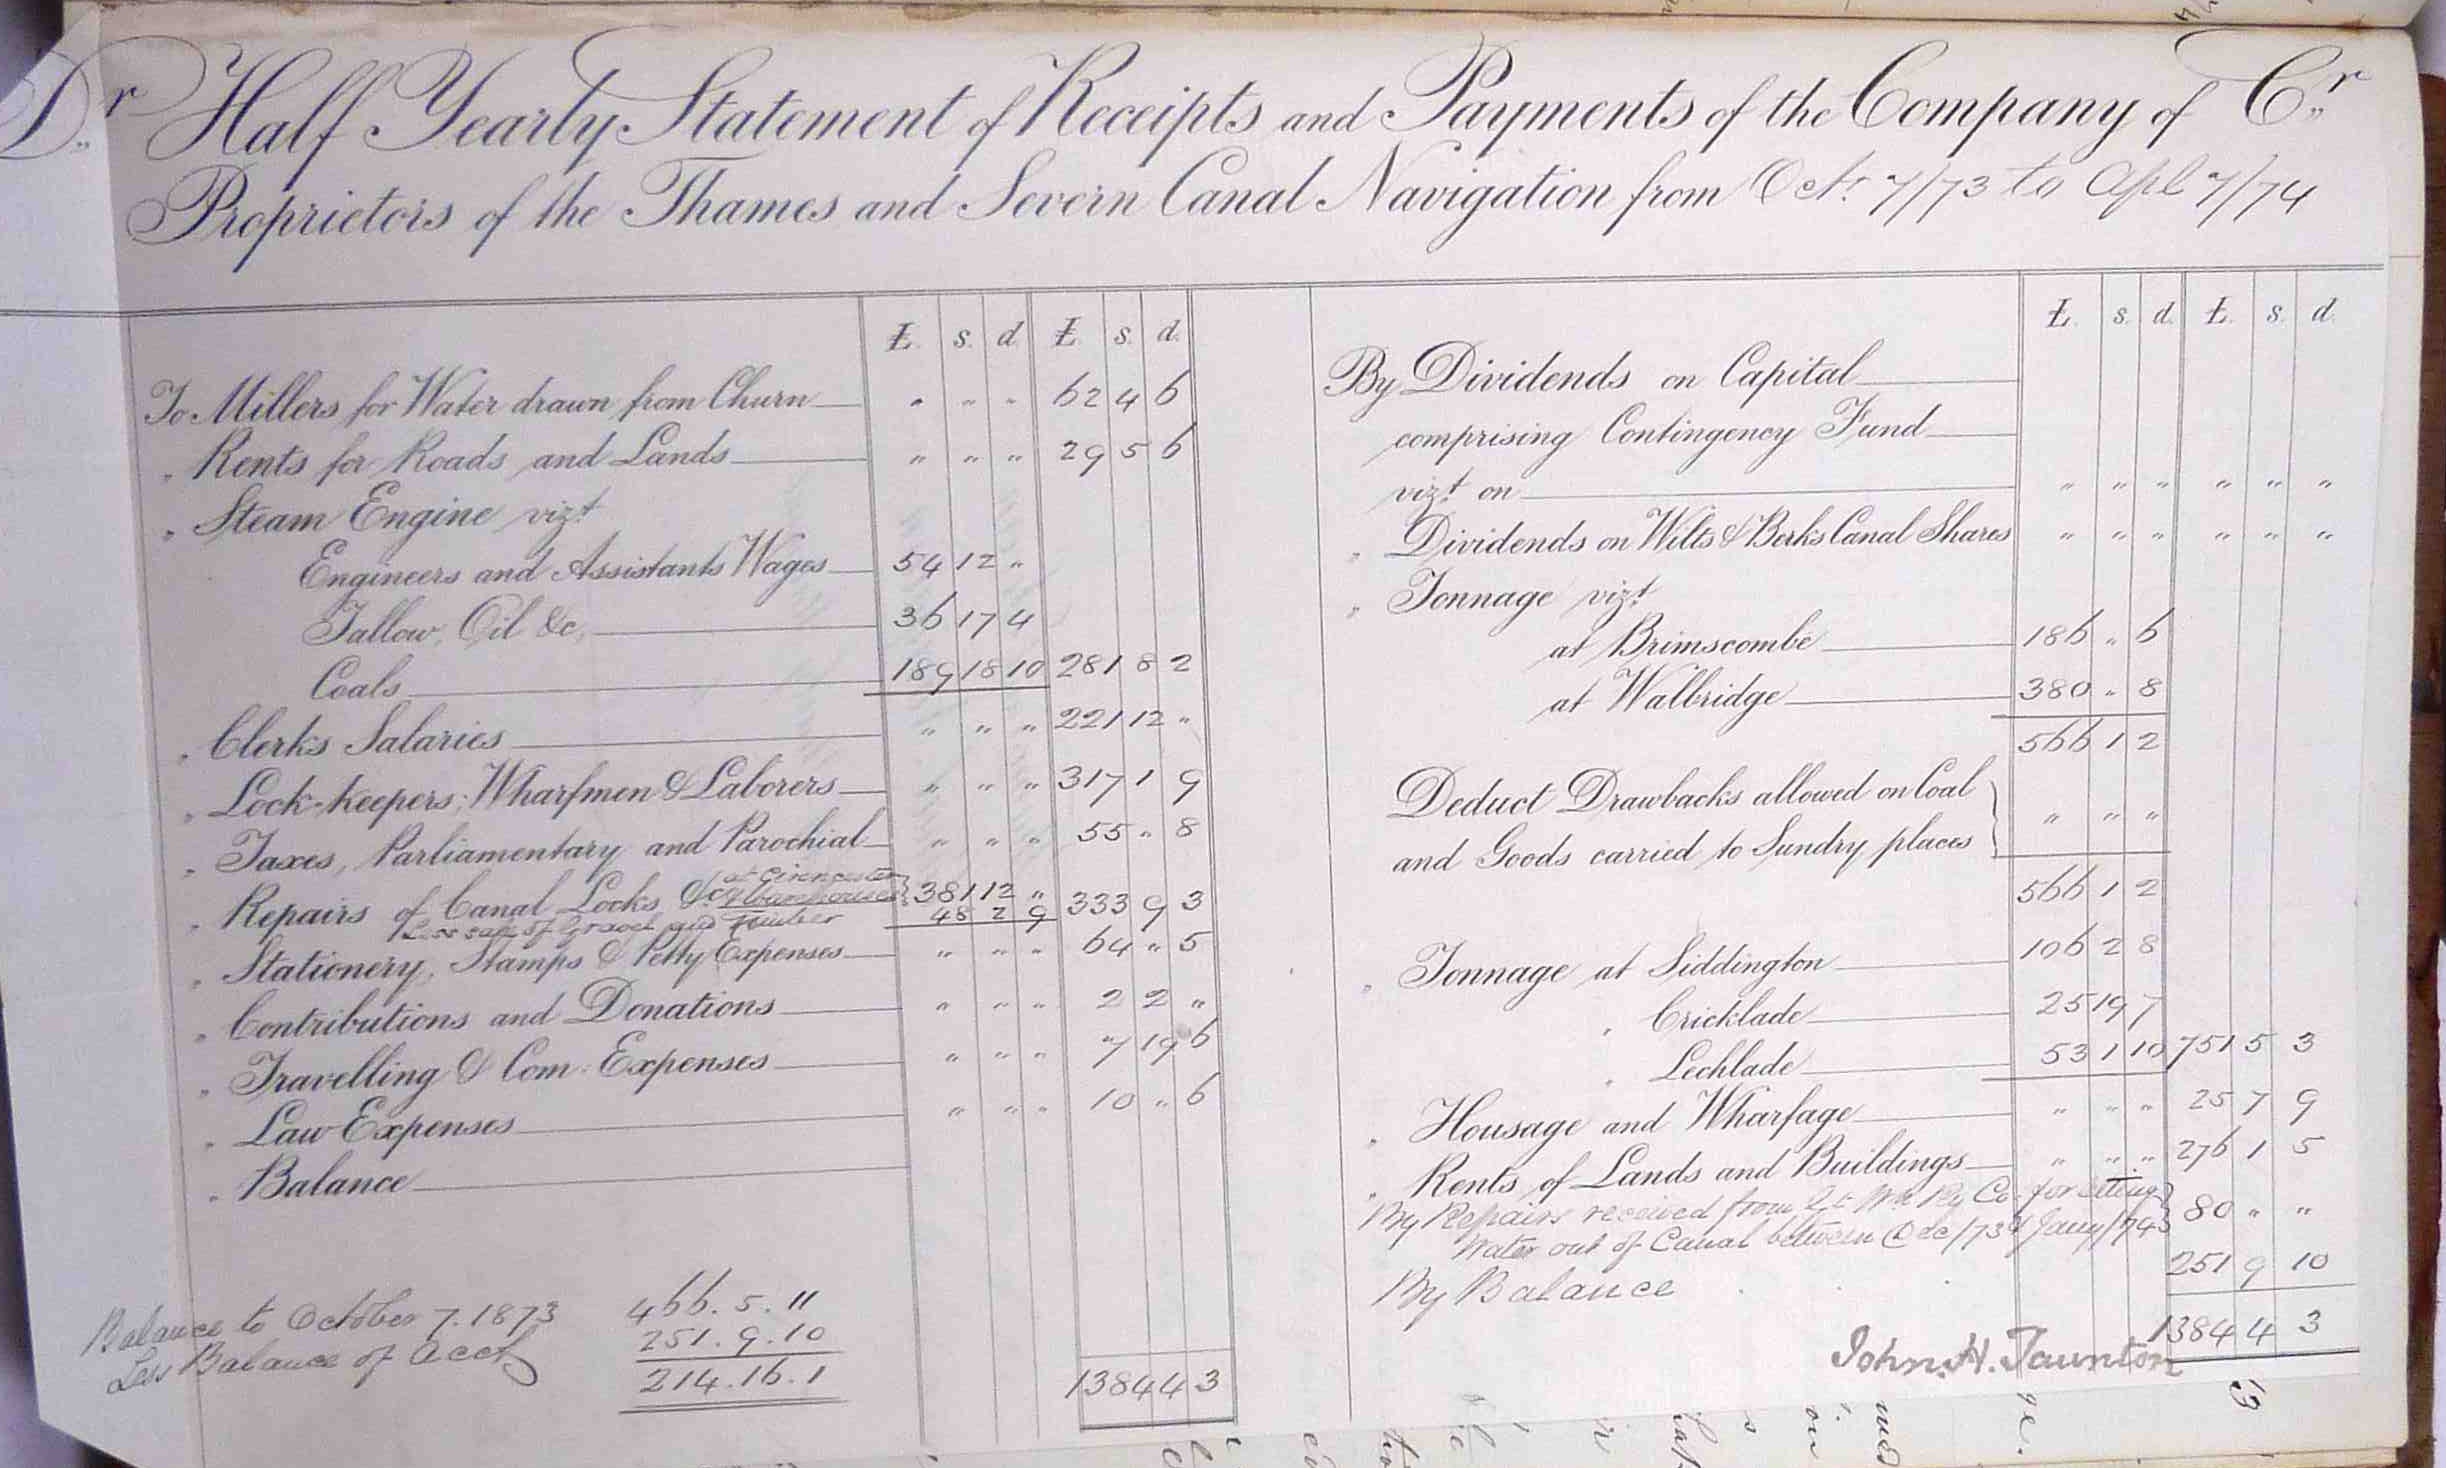 Dr Half Yearly Statement of Receipts and Payments of the Company of Cr
Proprietors of the Thames and Severn Canal Navigation from Oct. 7/73 to Apl 7/74
£. s. d. £. s. d.
To Millers for Water drawn from Churn " " " 62 4 6
" Rents for Roads and Lands " " " 29 5 6
" Steam Engine vizt
Engineers and Assistants Wages 54 12 "
Tallow, Oil &c. 36 17 4
Coals 189 18 10 281 8 2
" Clerks Salaries " " " 221 12 "
" Lock-keepers, Wharfmen & Laborers " " " 317 1 9
" Taxes, Parliamentary and Parochial " " " 55 " 8
" Repairs of Canal Locks &c at Cirencester Warehouses 381 12 " 333 9 3
Less sale of Gravel and Timber 48 2 9
" Stationery, Stamps & Petty Expenses " " " 64 " 5
" Contributions and Donations " " " 2 2 "
" Travelling & Com: Expenses " " " 7 19 6
" Law Expenses " " " 10 " 6
" Balance
Balance to October 7. 1873 466. 5. 11
Less Balance of acct 251. 9. 10
214. 16. 1
1384 4 3
£. s. d. £. s. d.
By Dividends on Capital
comprising Contingency Fund
vizt on " " " " " "
" Dividends on Wilts & Berks Canal Shares " " " " " "
" Tonnage vizt
at Brimscombe 186 " 6
at Walbridge 380 " 8
566 1 2
Deduct Drawbacks allowed on Coal
and Goods carried to Sundry places " " "
566 1 2
" Tonnage at Siddington 106 2 8
" Cricklade 25 19 7
" Lechlade 53 1 10 751 5 3
" Housage and Wharfage " " " 25 7 9
" Rents of Lands and Buildings " " " 276 1 5
By Repairs received from Gt Wn Ry Co for letting
Water out of Canal between Dec/73 & Jany/74 80 " "
By Balance 251 9 10
1384 4 3
John. H. Taunton